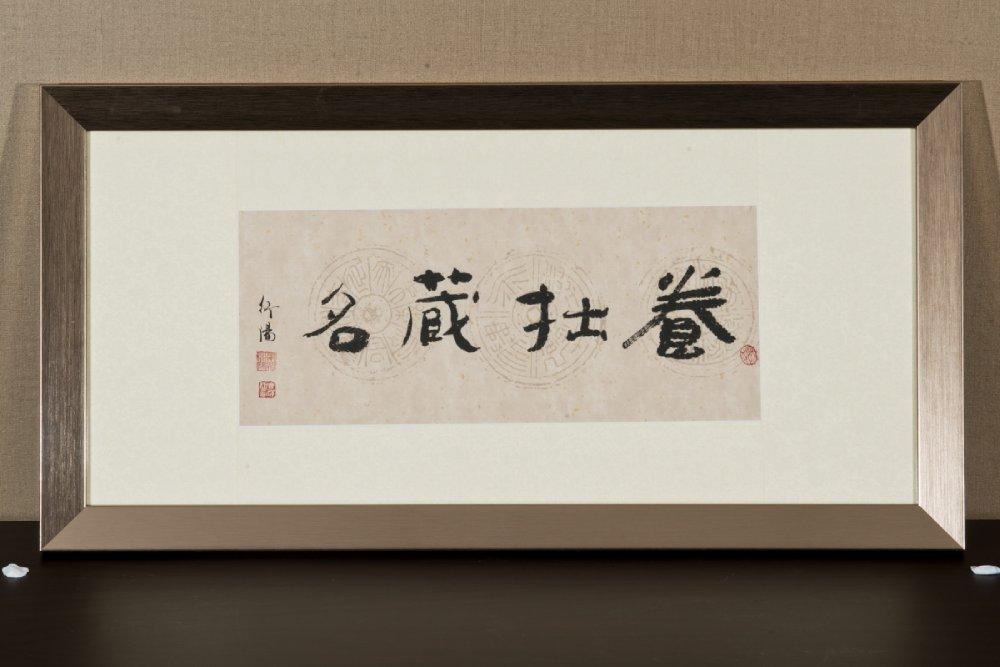 養拙藏名